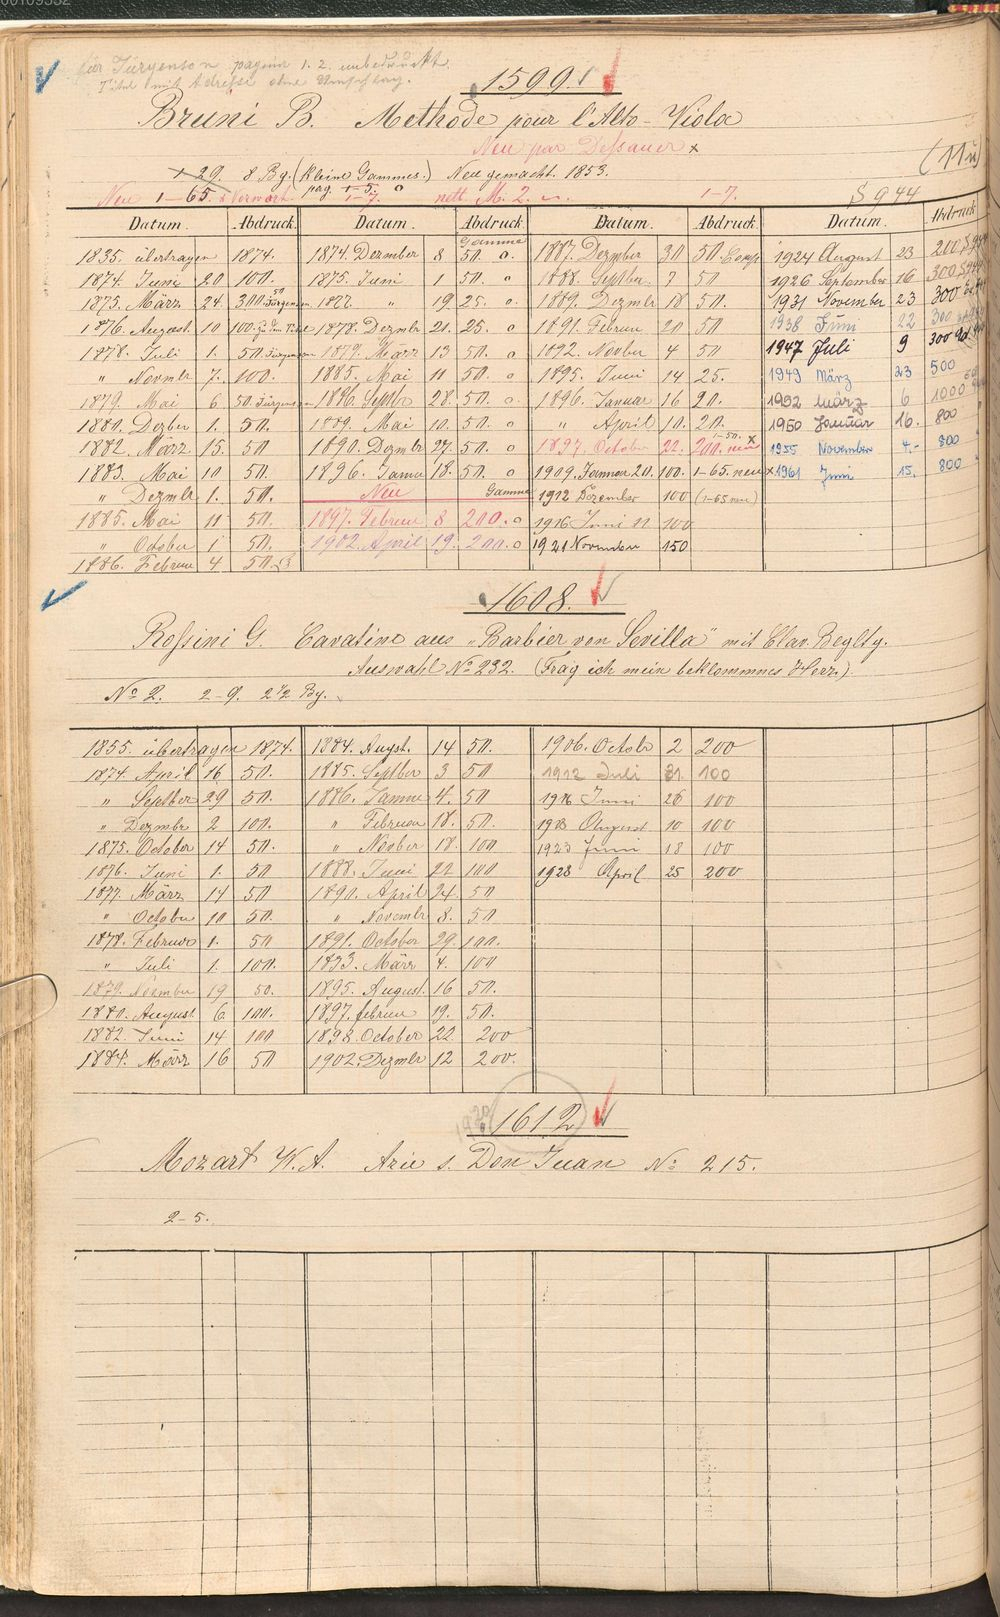 für Jürgenson pagina 1. 2. unbedruckt.
Titel mit Adresse ohne Umschlag.
1599.
Bruni B. Methode pour l'Alto-Viola
Neu par Dessauer x
(11u)
1-29. 8 Bg. (Kleine Gammes.) Neu gemacht. 1853.
pag. 1-5. o
Neu 1-65. u Vorwort. 1-7. nett. M. 2. 1-7. S 944
Datum. Abdruck. Datum. Abdruck. Datum. Abdruck. Datum. Abdruck
Gamme
1835. übertragen 1874. 1874. Dezember 8 50. o. 1887. Dezmber 30 50. 1924 August 23 200 S 944
1874. Juni 20 100. 1875. Juni 1 50. o 1888. Septber. 7 50 1926 September 16 300 S 944
1875. März 24. 300. Jürgenson 1877 " 19 25. o 1889. Dezmb. 18 50. 1931 November 23 300
1876. August. 10 100. 1878. Dezmb 21. 25. o 1891. Februar 20 50 1938 Juni 22 300
1878. Juli 1. 50. Jürgenson 1879. März 13 50. o 1892. Novber 4 50 1947 Juli 9 300
" Novmb 7. 100. 1885. Mai 11 50. o 1895. Juni 14 25. 1949 März 23 500
1879. Mai 6. 50. Jürgenson 1886. Septbr 28. 50. o 1896. Januar 16 20. 1952 März 6 1000
1880. Dezber 1. 50. 1889. Mai 10. 50. o " April 10. 20. 1950 Januar 16. 800 "
1882. März 15. 50 1890. Dezmb 27. 50. o 1897. October 22. 200. neu 1-50. x 1955 November 4.- 800 "
1883. Mai 10 50. 1896. Januar 18. 50. o 1909. Januar 20. 100. 1-65. neu x 1961 Juni 15. 800 "
" Dezmb 1. 50. Neu Gamme 1912 Dezember 100 (1-65 neu)
1885. Mai 11 50. 1897. Februar 8 200. o 1916 Juni 11 100
" October 1 50. 1902. April 19. 200. o 1921 November 150
1886. Februar 4 50.
1608.
Rossini G. Cavatine aus "Barbier von Sevilla" mit Clav. Begltg.
Auswahl No 232. (Frag ich mein beklommnes Herz.)
No 2. 2-9. 2 1/2 Bg.
1855. übertragen 1874. 1884. Augst. 14 50. 1906. Octobr 2 200
1874. April 16 50. 1885. Septber 3 50 1912 Juli 31. 100
" Septber 29 50. 1886. Januar 4. 50 1916 Juni 26 100
" Dezmbr 2 100. " Februar 18. 50. August 10 100
1875. October 14 50. " Novber 18. 100 1923 Juni 18 100
1876. Juni 1. 50 1888. Juni 22 100 1928 April 25 200
1877. März 14 50 1890. April 24. 50
" October 10 50. " Novembr 8. 50
1878. Februar 1. 50 1891. October 29. 100.
" Juli 1. 100. 1893. März 4. 100
1879. Novmber 19 50. 1895. August. 16 50.
1880. August 6 100. 1897. Februar 19. 50.
1882. Juni 14 100 1898. October 22. 200
1884. März 16 50 1902. Dezmbr 12 200.
1612
Mozart W. A. Arie s. Don Juan No 215.
2-5.